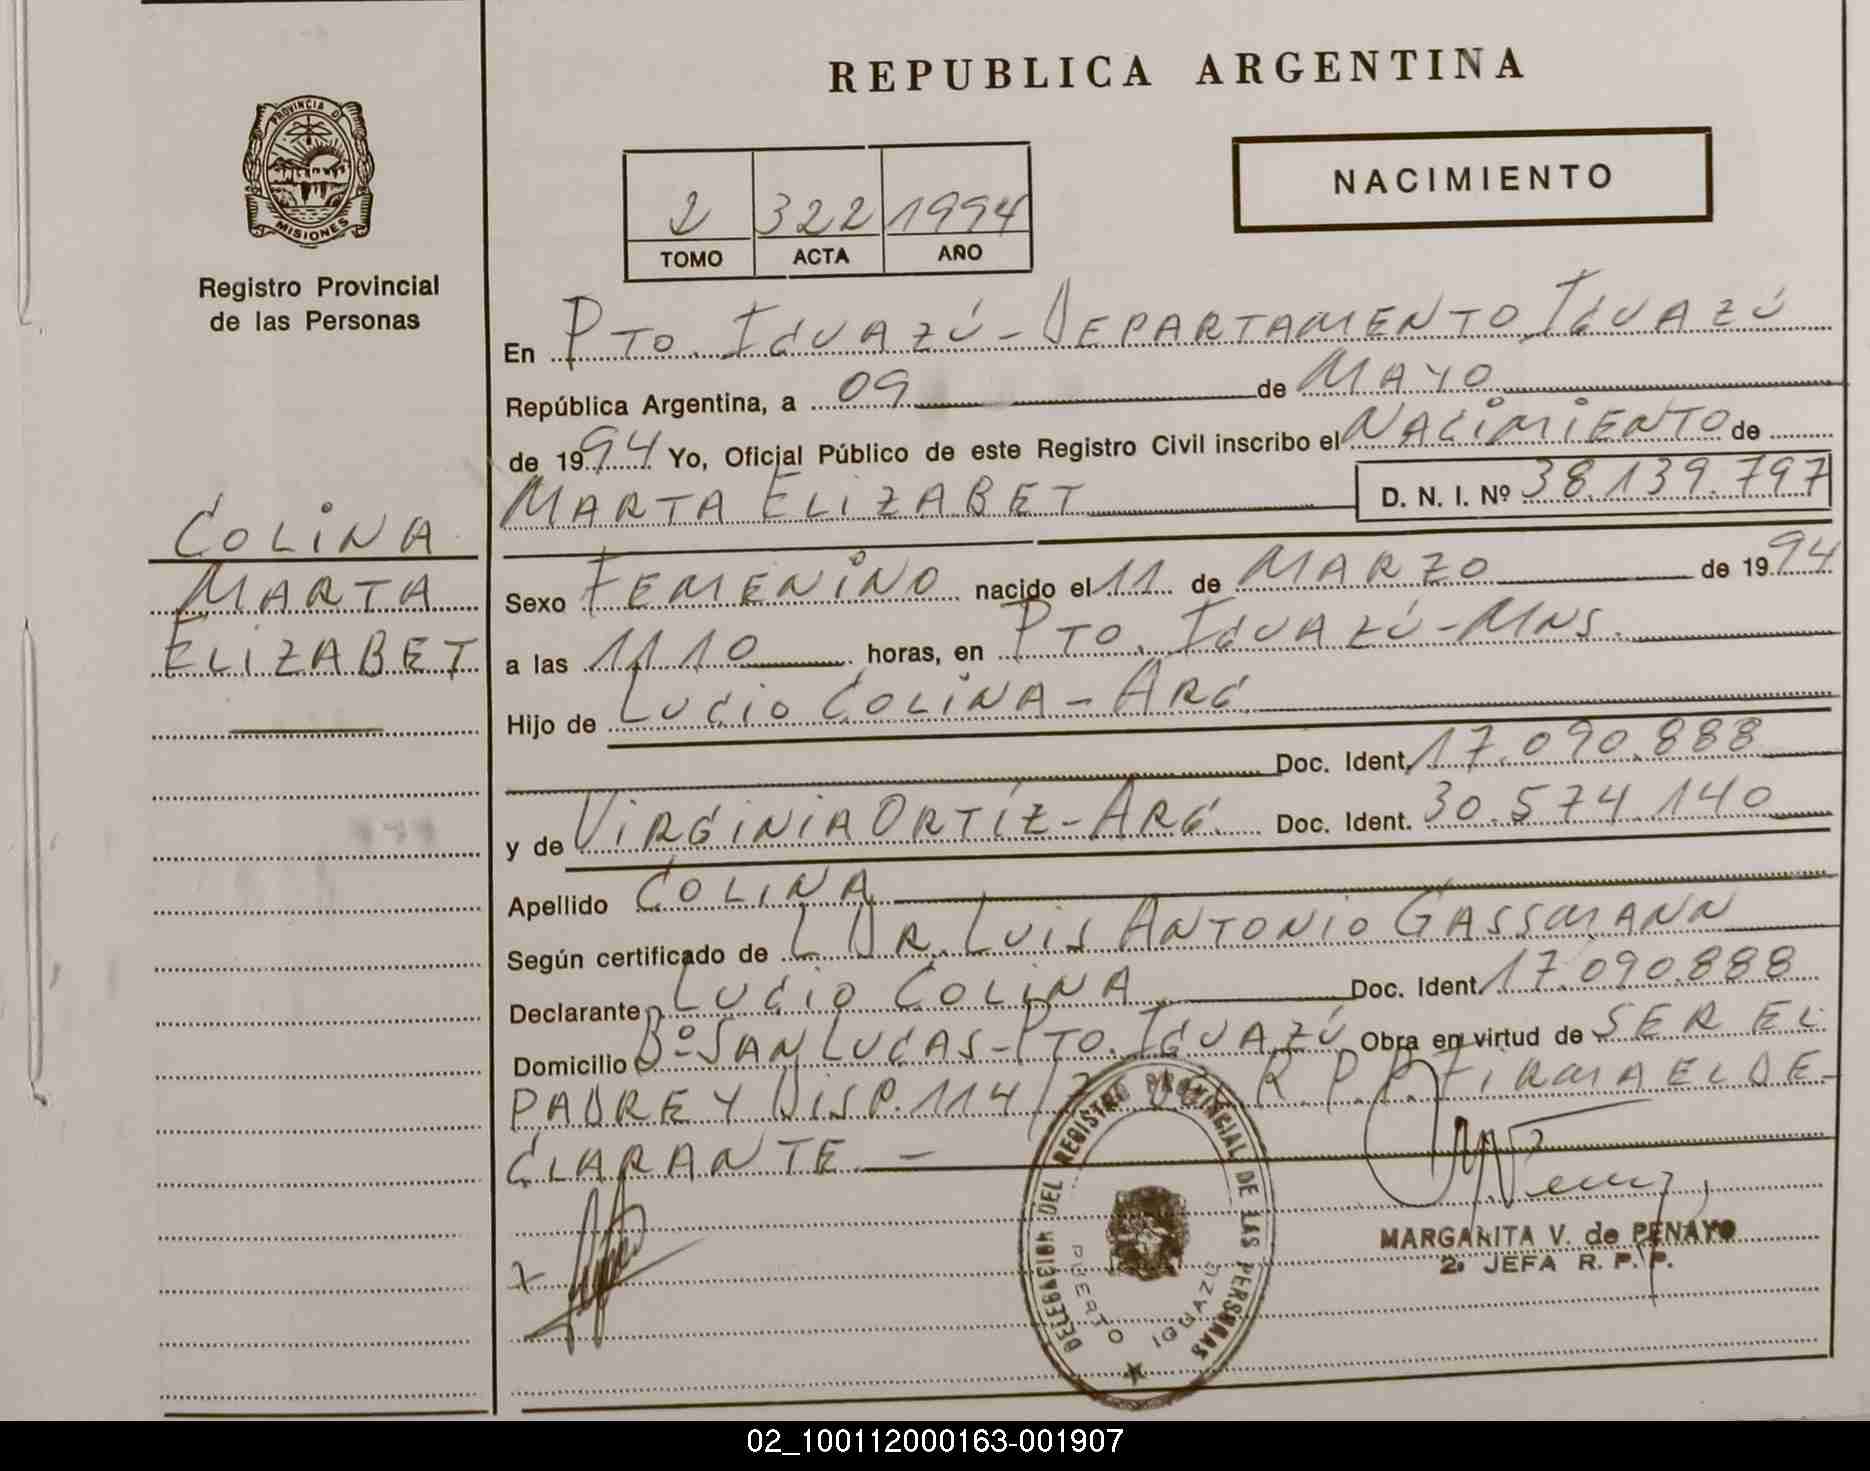 REPUBLICA ARGENTINA
PROVINCIA DE
MISIONES
Registro Provincial
de las Personas
NACIMIENTO
2 322 1994
TOMO ACTA AÑO
En PTO. IGUAZÚ - DEPARTAMENTO IGUAZÚ
República Argentina, a 09 de MAYO
de 1994 Yo, Oficial Público de este Registro Civil inscribo el NACIMIENTO de
MARTA ELIZABET D. N. I. Nº 38.139.797
COLINA
MARTA
ELIZABET
Sexo FEMENINO nacido el 11 de MARZO de 1994
a las 11 10 horas, en PTO. IGUAZÚ - MNS.
Hijo de LUCIO COLINA - ARG.
Doc. Ident. 17.090.888
y de VIRGINIA ORTÍZ - ARG. Doc. Ident. 30.574.140
Apellido COLINA
Según certificado de DR. LUIS ANTONIO GASSMANN
Declarante LUCIO COLINA Doc. Ident. 17.090.888
Domicilio Bº SAN LUCAS - PTO. IGUAZÚ Obra en virtud de SER EL
PADRE Y DISP. 114/ R.P.P. FIRMA EL DE-
CLARANTE. -
DELEGACION DEL REGISTRO PROVINCIAL DE LAS PERSONAS
PUERTO IGUAZU
MARGARITA V. de PENAYO
2ª JEFA R. P. P.
02_100112000163-001907